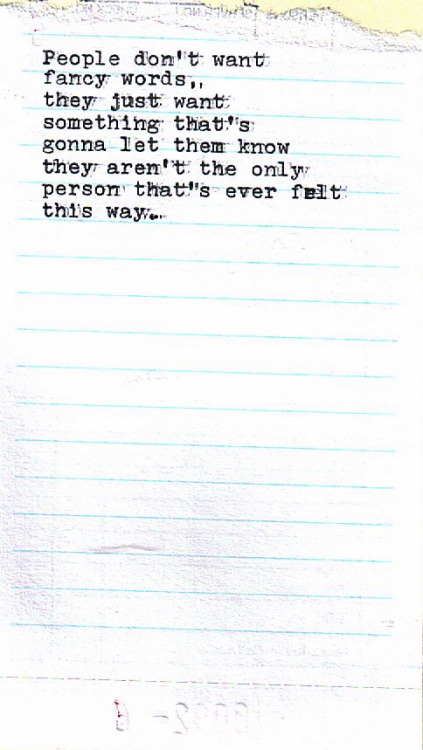 People don't want
fancy words,,
they just want
something that"s
gonna let them know
they aren't the only
person that"s ever felt
this way...